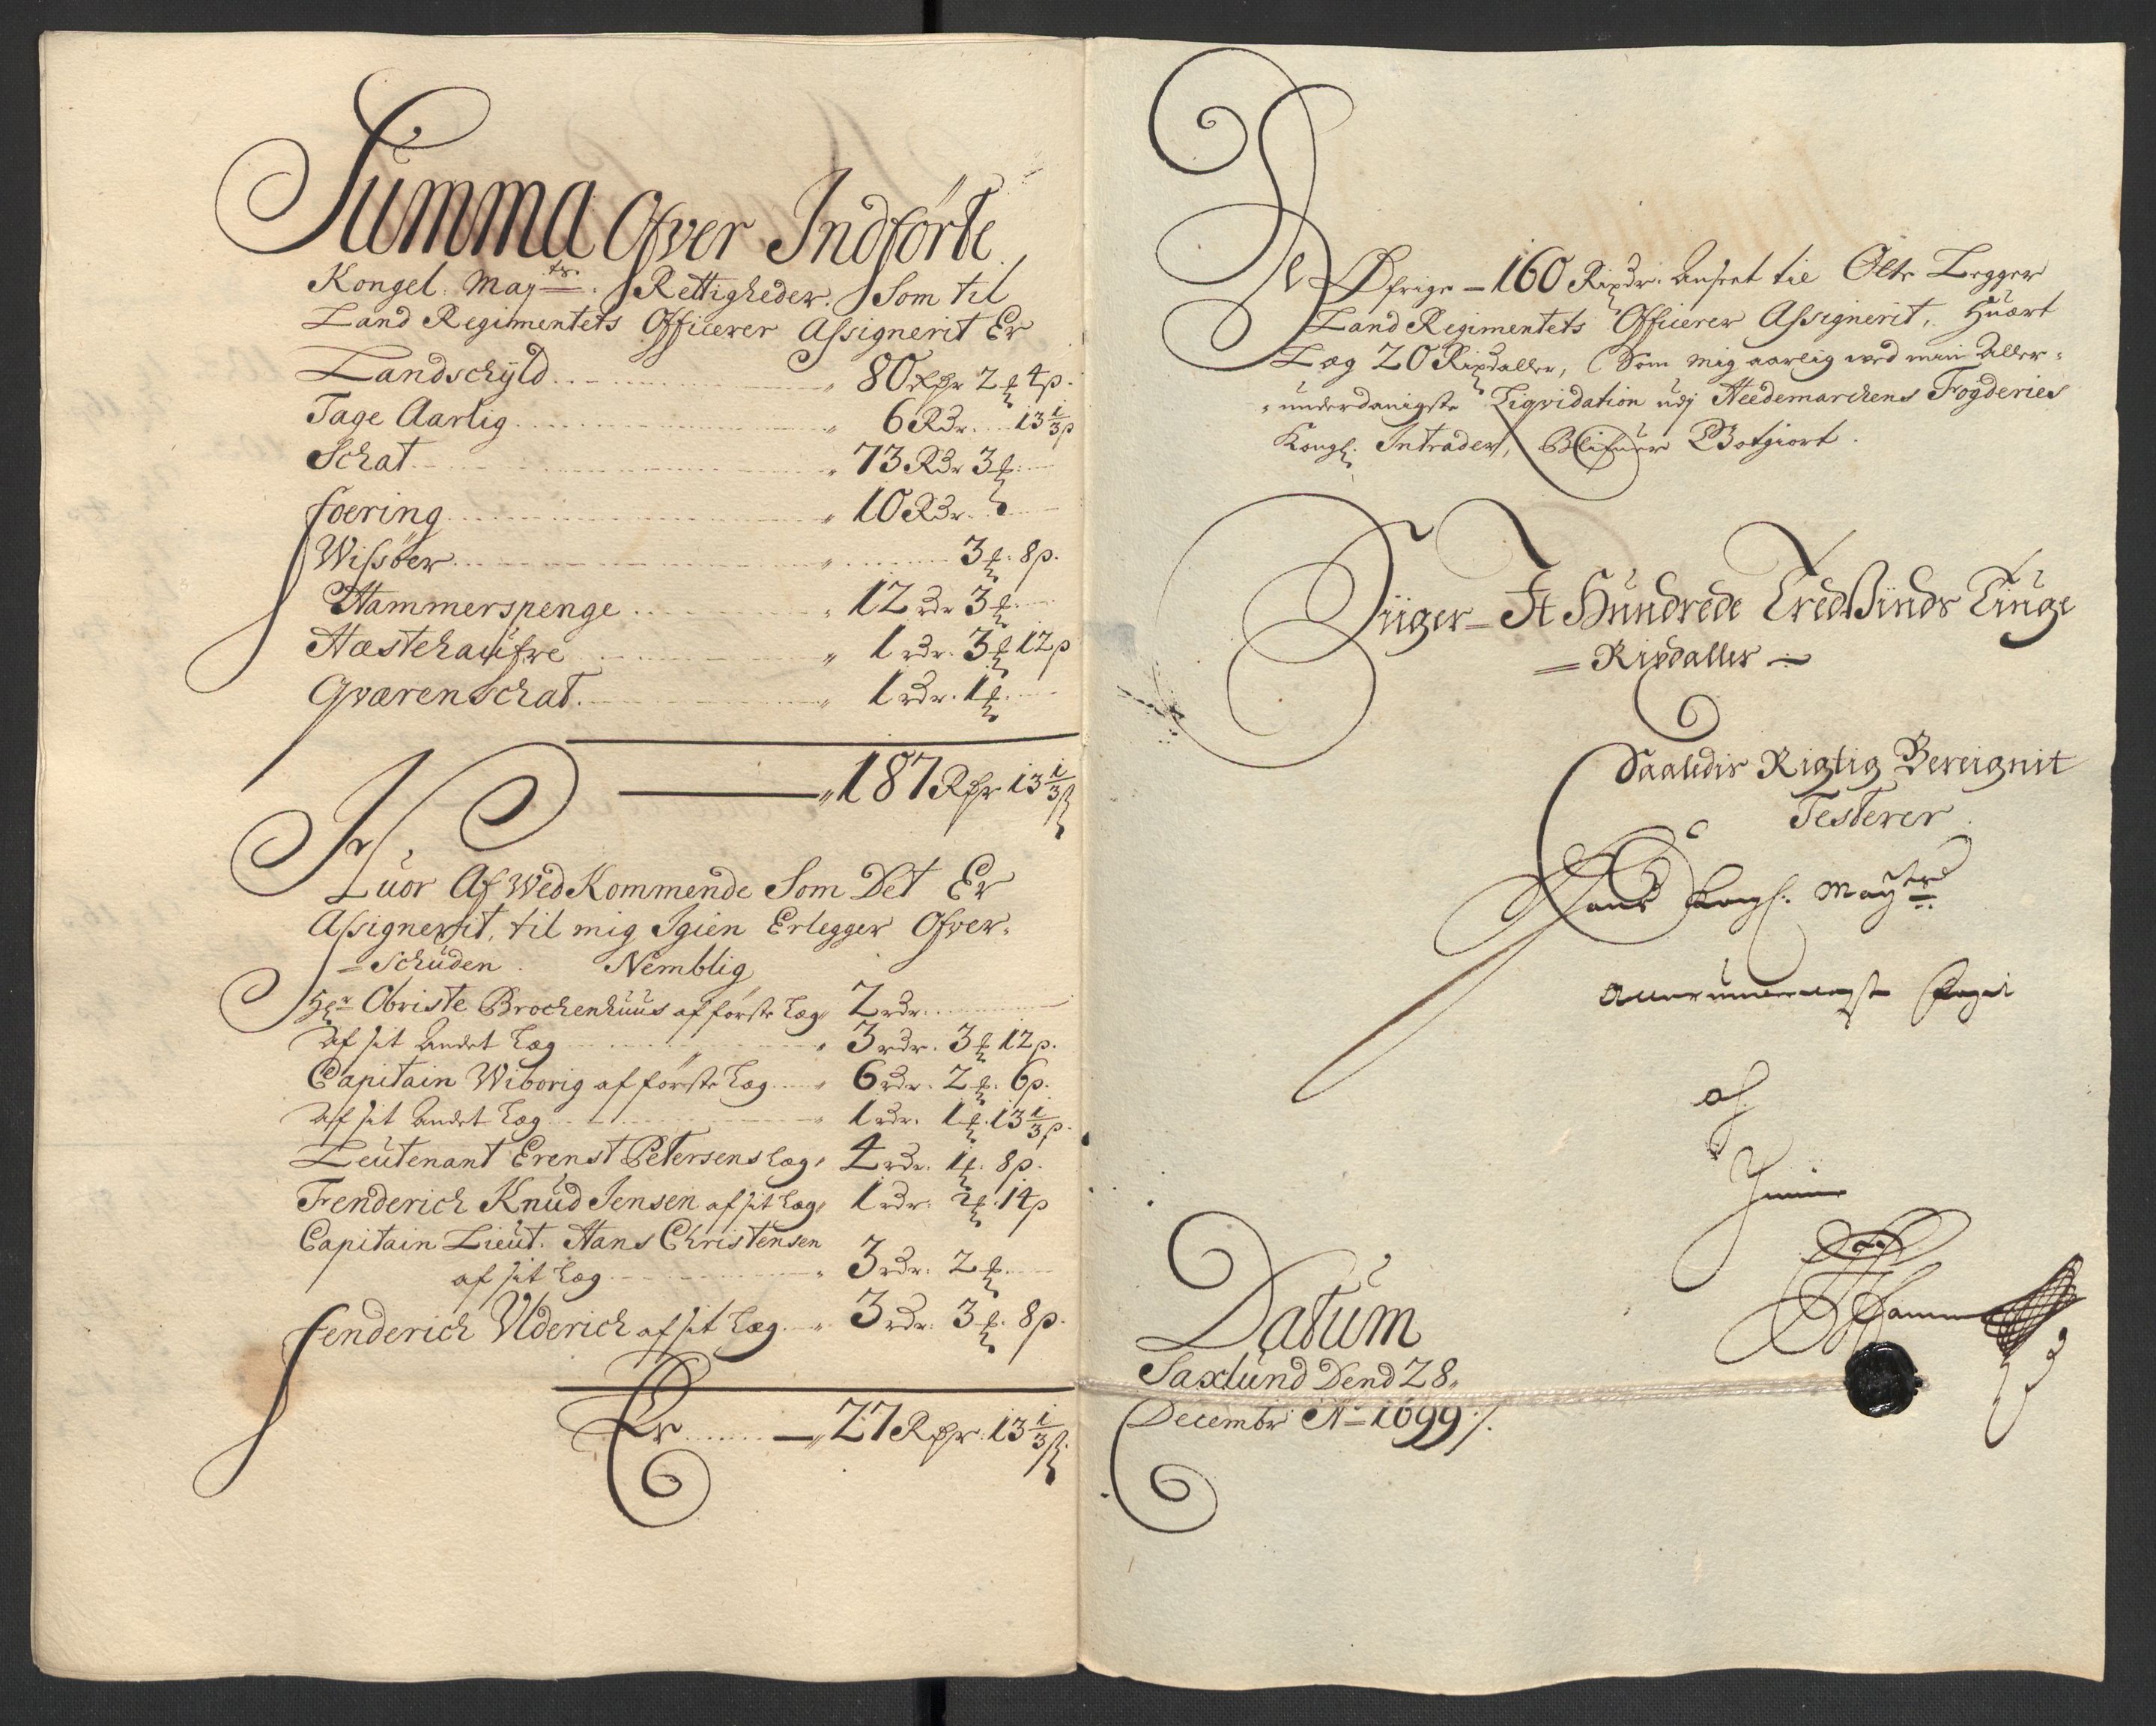 Summa Ofver Indförte
Kongel. Maytz. Rettigheder. Som til
Land Regimentets Officerer Assignerit Er
Landschÿld 80 Rdr 2 ₰ 4 p.
Tage Aarlig 6 Rdr. 13 1/3 p
Schat 73 Rdr 3 ₰.
foering 10 Rdr.
Wissöer 3 ₰. 8 p.
Hammerspenge 12 rdr 3 ₰.
Hæstehaufre 1 rdr. 3 ₰ 12 p
Qværenschat 1 rdr. 1 ₰.
187 Rdr 13 1/3 ß
Huor Af Wed Kommende Som Det Er
Assignerit, til mig Igien Erlegger Ofver-
-Schuden. Nemblig
Hr Obriste Brochenhuus af förste Læg 2 rdr.
Af sit Andet Læg 3 rdr. 3 ₰ 12 p.
Capitain Wiborig af förste Læg 6 rdr. 2 ₰. 6 p.
Af sit Andet Læg 1 rdr. 1 ₰. 13 1/3 p.
Leutenant Erenst Petersens Læg 4 rdr. 1 ₰. 8 p.
Frenderich Knud Jensen af sit Læg 1 rdr. 2 ₰. 14 p
Capitain Lieut. Hans Christensen
af sit Læg 3 rdr. 2 ₰.
Fenderich Ulderich af sit Læg 3 rdr. 3 ₰. 8 p.
Er 27 Rdr. 13 1/3 ß.
De Øfrige - 160 Rixdr. Anseet til Otte Legger
Land Regimentets Officerer Assignerit, Huært
Læg 20 Rixdaller, (Som mig aarlig ved min Aller-
-underdanigste Liqvidation udj Heedemarchens Fogderies
Kongl. Intrader, Blifuer Gotgiort.
Siiger - Et Hundrede Tredsinds Tiuge
= Rixdaller -
Saaledis Rigtig Bereignit
Testerer
Hans Kongl. Mayts
Allerunderdanigst Fogit
af
Datum
Saxlund Dend 28.
Decembr Ao 1699 /.